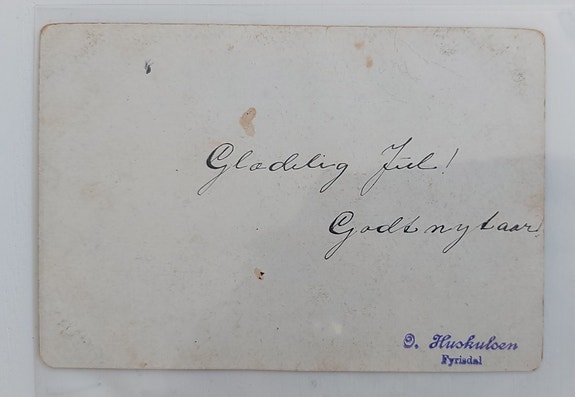 Glædelig Jul!
Godt nytaar
O. Huskulsen
Fyrisdal